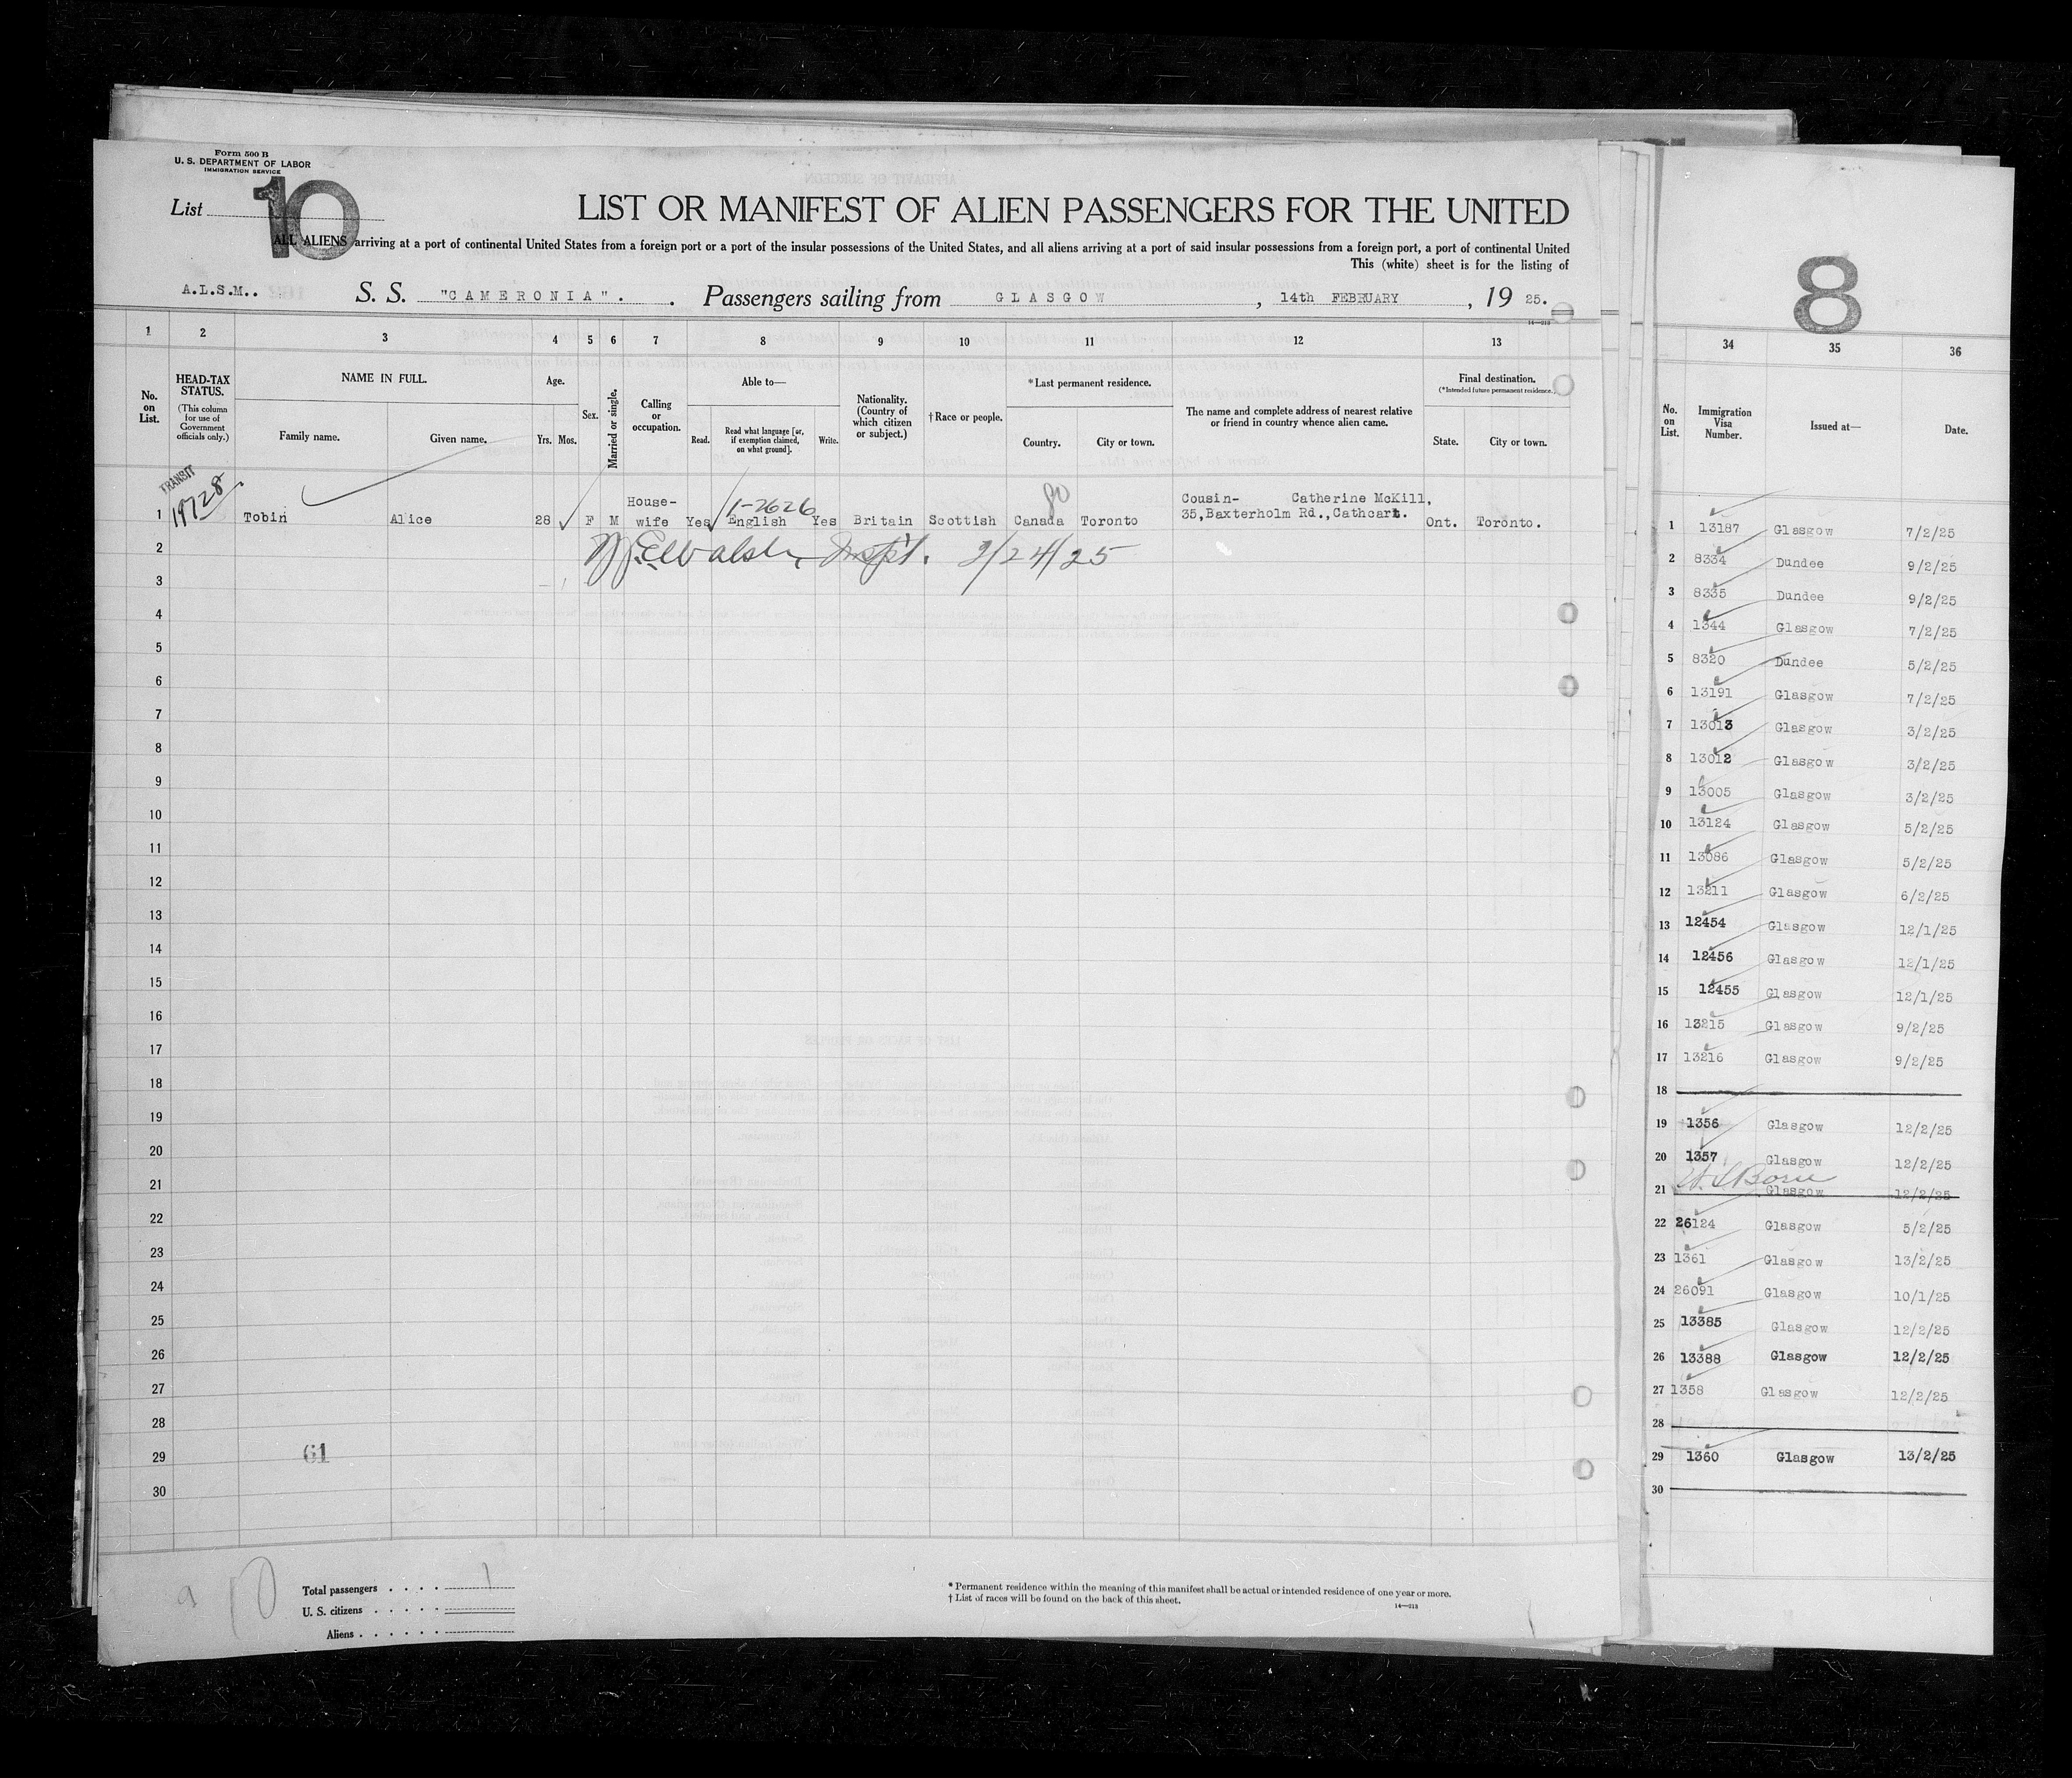 Form 500 B
U. S. DEPARTMENT OF LABOR
IMMIGRATION SERVICE
List 10
LIST OR MANIFEST OF ALIEN PASSENGERS FOR THE UNITED
ALL ALIENS arriving at a port of continental United States from a foreign port or a port of the insular possessions of the United States, and all aliens arriving at a port of said insular possessions from a foreign port, a port of continental United
This (white) sheet is for the listing of
A.L.S.M.. S. S. "CAMERONIA". . Passengers sailing from GLASGOW , 14th FEBRUARY , 19 25.
14—213
1 2 3 4 5 6 7 8 9 10 11 12 13
No. on List.
HEAD-TAX STATUS.
(This column for use of Government officials only.)
NAME IN FULL.
Family name. Given name.
Age.
Yrs. Mos.
Sex.
Married or single.
Calling or occupation.
Able to—
Read. Read what language [or, if exemption claimed, on what ground]. Write.
Nationality. (Country of which citizen or subject.)
†Race or people.
*Last permanent residence.
Country. City or town.
The name and complete address of nearest relative or friend in country whence alien came.
Final destination.
(*Intended future permanent residence.)
State. City or town.
TRANSIT
19728
1-2626
1 Tobin Alice 28 F M House-wife Yes English Yes Britain Scottish Canada Toronto Cousin- Catherine McKill, 35,Baxterholm Rd.,Cathcart. Ont. Toronto.
2 Walsh, Inspt. 2/24/25
3
4
5
6
7
8
9
10
11
12
13
14
15
16
17
18
19
20
21
22
23
24
25
26
27
28
29 61
30
10
Total passengers . . . . 1
U. S. citizens . . . . .
Aliens . . . . . .
* Permanent residence within the meaning of this manifest shall be actual or intended residence of one year or more.
† List of races will be found on the back of this sheet.
14—213
8
34 35 36
No. on List.
Immigration Visa Number.
Issued at—
Date.
1 13187 Glasgow 7/2/25
2 8334 Dundee 9/2/25
3 8335 Dundee 9/2/25
4 1344 Glasgow 7/2/25
5 8320 Dundee 5/2/25
6 13191 Glasgow 7/2/25
7 13013 Glasgow 3/2/25
8 13012 Glasgow 3/2/25
9 13005 Glasgow 3/2/25
10 13124 Glasgow 5/2/25
11 13086 Glasgow 5/2/25
12 13211 Glasgow 6/2/25
13 12454 Glasgow 12/1/25
14 12456 Glasgow 12/1/25
15 12455 Glasgow 12/1/25
16 13215 Glasgow 9/2/25
17 13216 Glasgow 9/2/25
18
19 1356 Glasgow 12/2/25
20 1357 Glasgow 12/2/25
21 Glasgow 12/2/25
22 26124 Glasgow 5/2/25
23 1361 Glasgow 13/2/25
24 26091 Glasgow 10/1/25
25 13385 Glasgow 12/2/25
26 13388 Glasgow 12/2/25
27 1358 Glasgow 12/2/25
28
29 1360 Glasgow 13/2/25
30